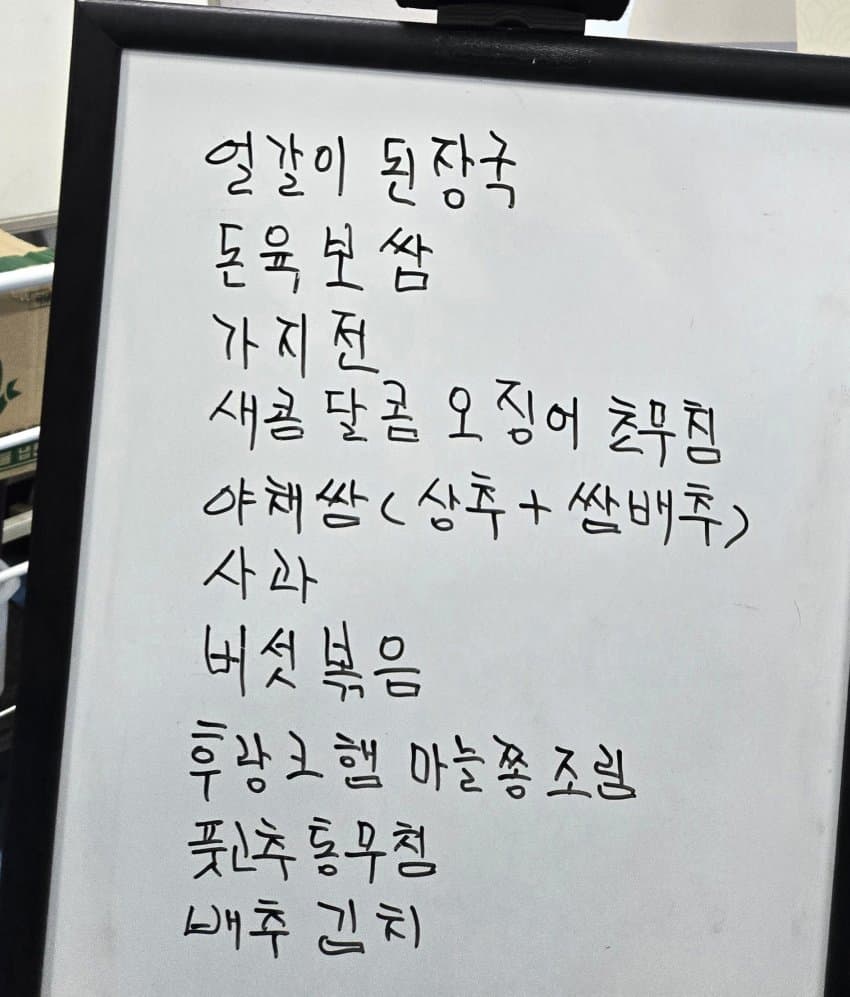 얼갈이 된장국
돈육보쌈
가지전
새콤달콤 오징어 초무침
야채쌈(상추+쌈배추)
사과
버섯볶음
후랑크햄 마늘쫑조림
풋고추통무침
배추김치